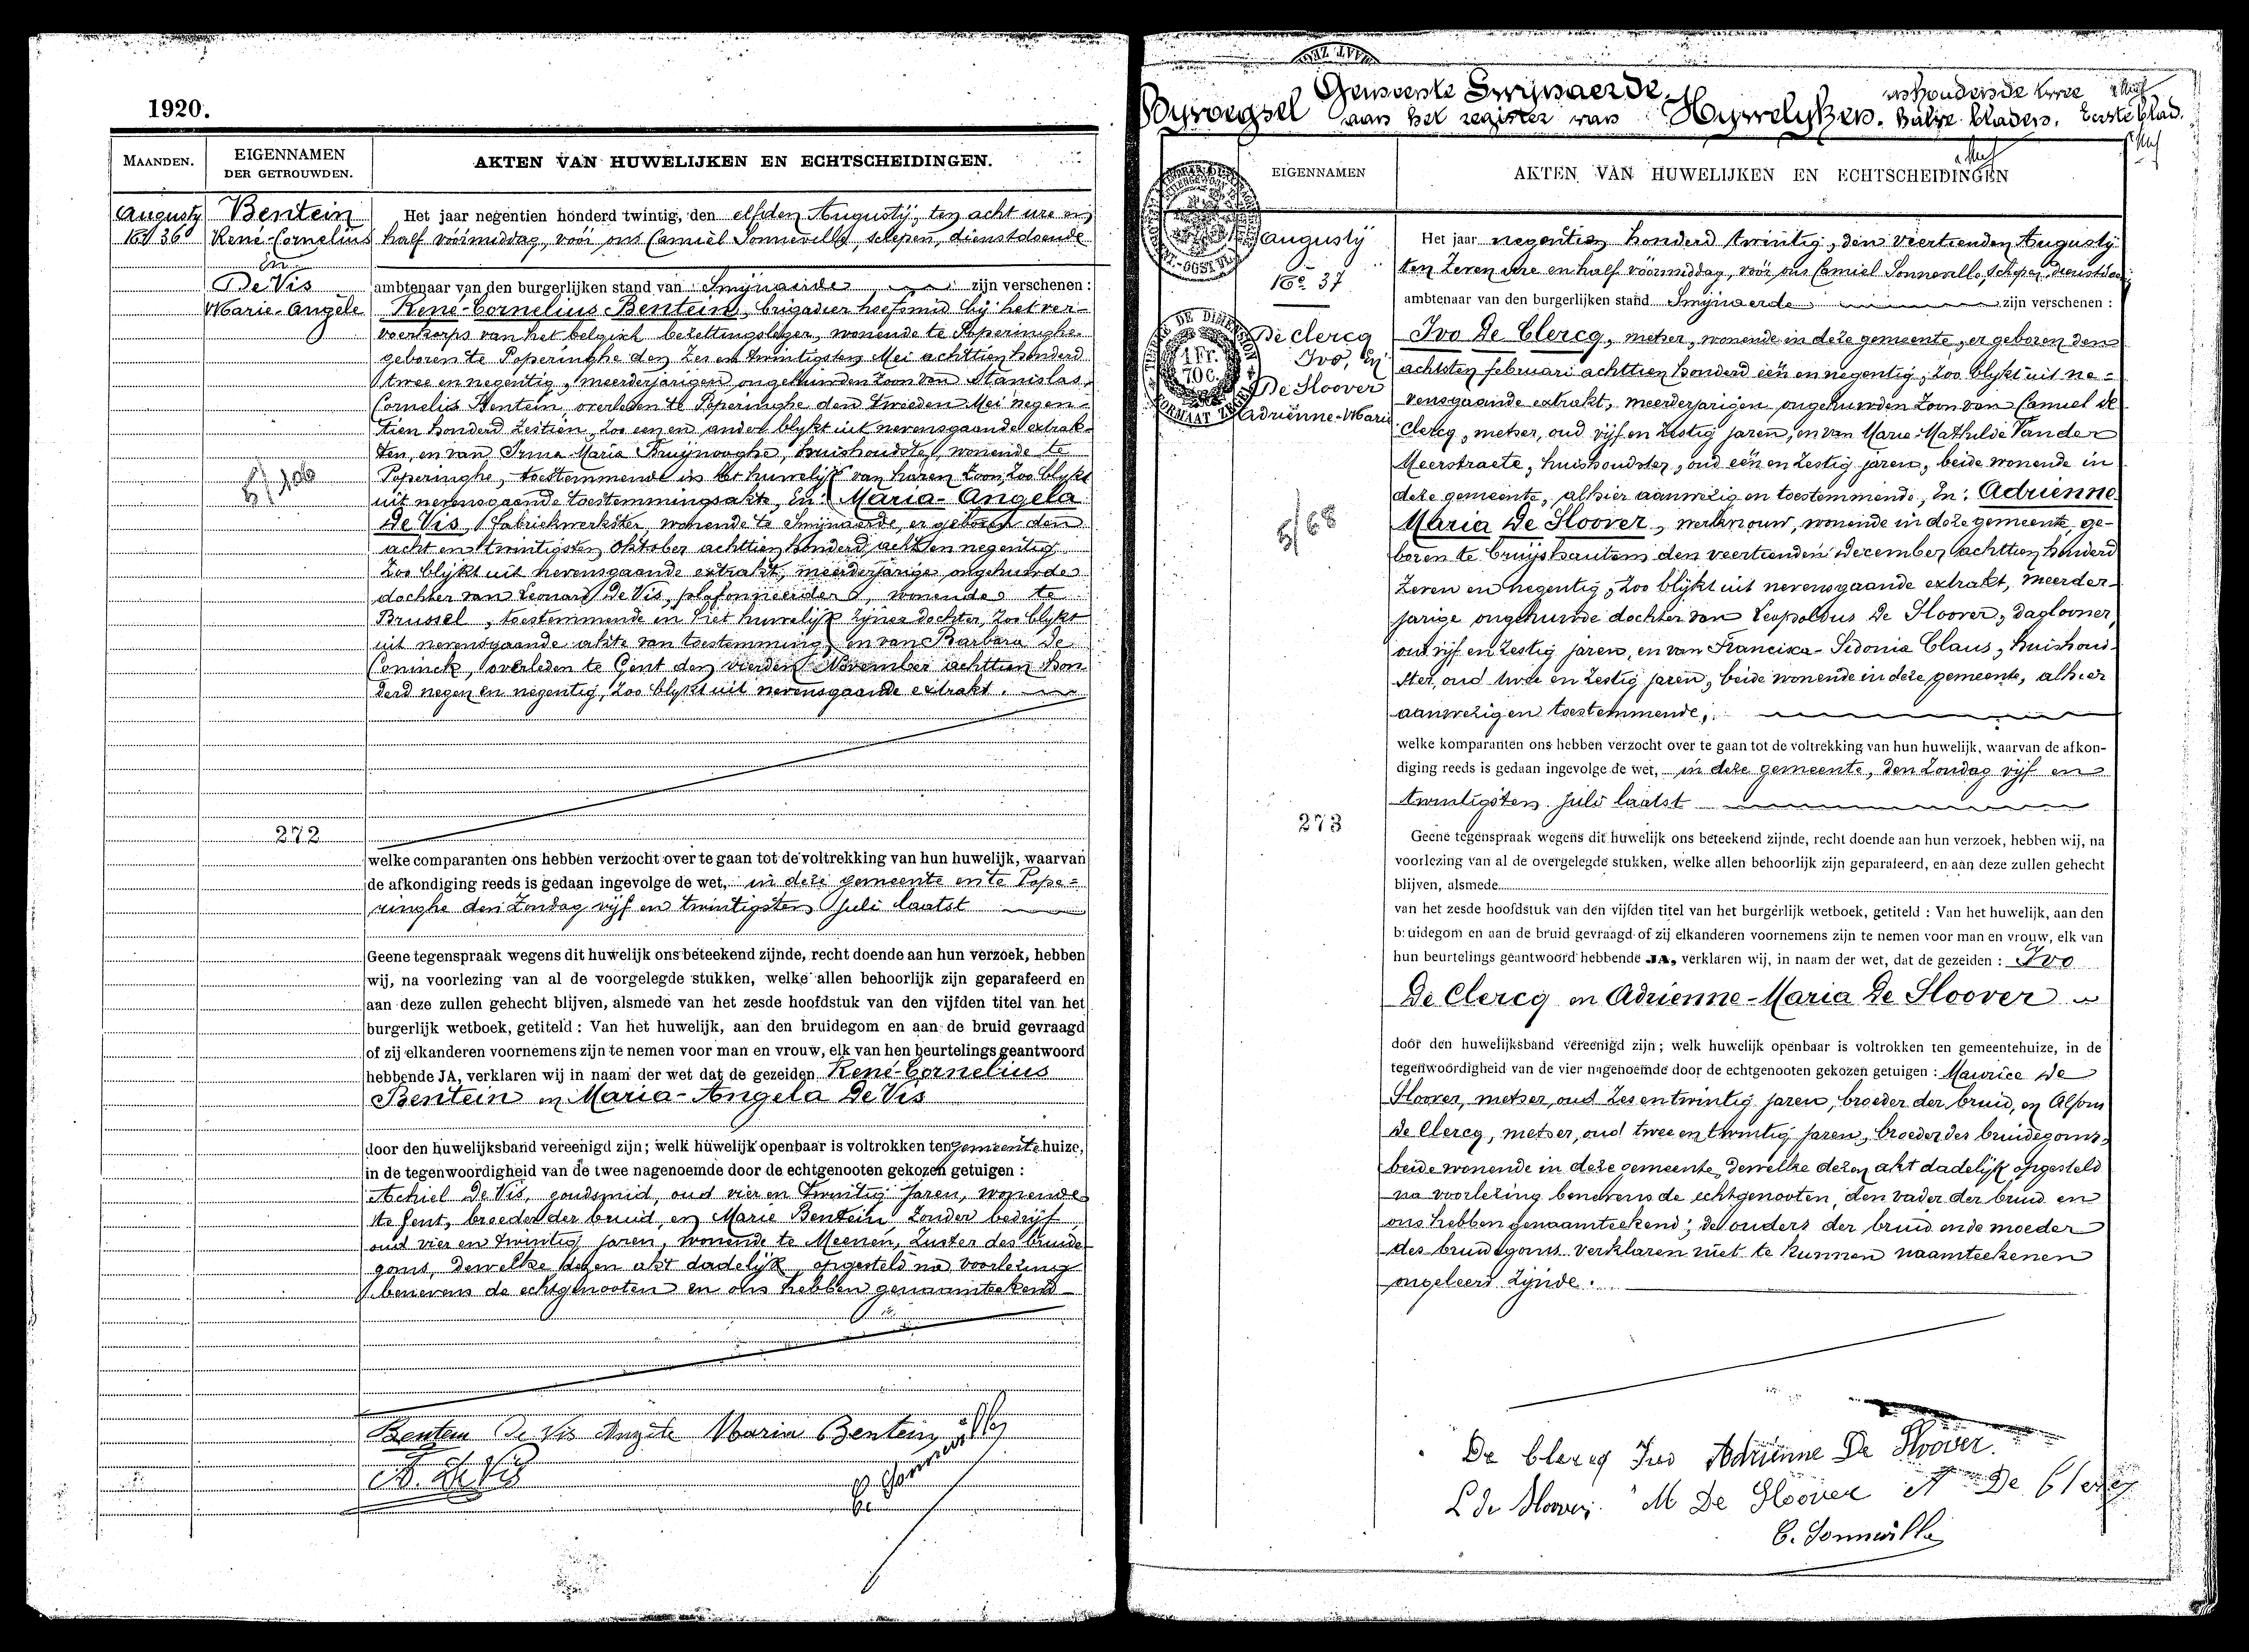 1920.
MAANDEN.
EIGENNAMEN
DER GETROUWDEN.
AKTEN VAN HUWELIJKEN EN ECHTSCHEIDINGEN.
Augusty
Bentein
René-Cornelius
en
De Vis
Marie-Angèle
272
Het jaar negentien honderd twintig, den elfden Augustÿ, ten acht ure en
half vóórmiddag, vóór ons Camiel Sonneville, schepen, dienstdoende
ambtenaar van den burgerlijken stand van Smijnaerde zijn verschenen :
René-Cornelius Bentein, brigadier hoefsmid bij het ver-
voerkorps van het belgisch bezettingsleger, wonende te Poperinghe
geboren te Poperinghe den zes en twintigsten Mei achttien honderd
twee en negentig, meerderjarigen ongehuwden zoon van Stanislas,
Cornelius Bentein, overleden te Poperinghe den tweeden Mei negen-
tien honderd zestien, zoo een en ander blykt uit nevensgaande extrak-
ten, en van Irma Maria Bruijnooghe, huishoudster, wonende te
Poperinghe, toestemmende in het huwelijk van haren zoon, zoo blykt
uit nevensgaande toestemmingsakte, En: Maria-Angela
De Vis, fabriekwerkster, wonende te Smijnaerde, er geboren den
acht en twintigsten Oktober achttien honderd acht en negentig,
zoo blijkt uit nevensgaande extrakt, meerderjarige ongehuwde
dochter van Leonard De Vis, plafonneerder, wonende te
Brussel, toestemmende in het huwelijk zijner dochter, zoo blykt
uit nevensgaande akte van toestemming, en van Barbara De
Coninck, overleden te Gent den vierden November achttien hon
derd negen en negentig, zoo blykt uit nevensgaande extrakt.
welke comparanten ons hebben verzocht over te gaan tot de voltrekking van hun huwelijk, waarvan
de afkondiging reeds is gedaan ingevolge de wet, in deze gemeente en te Pope=
ringhe den Zondag vijf en twintigsten Juli laatst
Geene tegenspraak wegens dit huwelijk ons beteekend zijnde, recht doende aan hun verzoek, hebben
wij, na voorlezing van al de voorgelegde stukken, welke allen behoorlijk zijn geparafeerd en
aan deze zullen gehecht blijven, alsmede van het zesde hoofdstuk van den vijfden titel van het
burgerlijk wetboek, getiteld : Van het huwelijk, aan den bruidegom en aan de bruid gevraagd
of zij elkanderen voornemens zijn te nemen voor man en vrouw, elk van hen beurtelings geantwoord
hebbende JA, verklaren wij in naam der wet dat de gezeiden René-Cornelius
Bentein en Maria-Angela De Vis
door den huwelijksband vereenigd zijn; welk huwelijk openbaar is voltrokken ten gemeentehuize,
in de tegenwoordigheid van de twee nagenoemde door de echtgenooten gekozen getuigen :
Achiel De Vis, goudsmid, oud vier en twintig jaren, wonende
te Gent, broeder der bruid, en Marie Bentein, zonder bedrijf,
oud vier en twintig jaren, wonende te Meenen, zuster des bruide-
goms, dewelke dezen akt dadelijk opgesteld na voorlezing
benevens de echtgenooten en ons hebben genaamteekend
Bentein De Vis Angèle Maria Bentein
A. De Vis
C. Sonneville
Gemeente Smijnaerde.
Byvoegsel aan het register van Huwelyken. halve bladen. Eerste blad.
EIGENNAMEN
AKTEN VAN HUWELIJKEN EN ECHTSCHEIDINGEN
augustÿ
No 37
De Clercq
Ivo, en
De Sloover
Adriënne-Marie
1 Fr.
70 C.
273
Het jaar negentien honderd twintig, den veertienden Augustÿ
ten zeven ure en half vóórmiddag, vóór ons Camiel Sonneville, schepen, dienstdoen
ambtenaar van den burgerlijken stand Smijnaerde zijn verschenen :
Ivo De Clercq, metser, wonende in deze gemeente, er geboren den
achtsten februari achttien honderd een en negentig, zoo blykt uit ne-
vensgaande extrakt, meerderjarigen ongehuwden zoon van Camiel de
Clercq, metser, oud vijf en zestig jaren, en van Marie-Mathilde Vander
Meerstraete, huishoudster, oud een en zestig jaren, beide wonende in
deze gemeente, alhier aanwezig en toestemmende, En: Adrienne
Maria De Sloover, werkvrouw, wonende in deze gemeente ge-
boren te Cruijshautem den veertienden December achttien honderd
zeven en negentig, zoo blijkt uit nevensgaande extrakt, meerder-
jarige ongehuwde dochter van Leopoldus De Sloover, daglooner,
oud vijf en zestig jaren, en van Francisca-Sidonie Claus, huishoud-
ster, oud twee en zestig jaren, beide wonende in deze gemeente, alhier
aanwezig en toestemmende,
welke komparanten ons hebben verzocht over te gaan tot de voltrekking van hun huwelijk, waarvan de afkon-
diging reeds is gedaan ingevolge de wet, in deze gemeente, den Zondag vijf en
twintigsten Juli laatst
Geene tegenspraak wegens dit huwelijk ons beteekend zijnde, recht doende aan hun verzoek, hebben wij, na
voorlezing van al de overgelegde stukken, welke allen behoorlijk zijn geparafeerd, en aan deze zullen gehecht
blijven, alsmede
van het zesde hoofdstuk van den vijfden titel van het burgerlijk wetboek, getiteld : Van het huwelijk, aan den
bruidegom en aan de bruid gevraagd of zij elkanderen voornemens zijn te nemen voor man en vrouw, elk van
hun beurtelings geantwoord hebbende JA, verklaren wij, in naam der wet, dat de gezeiden : Ivo
De Clercq en Adrienne-Maria De Sloover
door den huwelijksband vereenigd zijn; welk huwelijk openbaar is voltrokken ten gemeentehuize, in de
tegenwoordigheid van de vier nagenoemde door de echtgenooten gekozen getuigen : Maurice De
Sloover, metser, oud zes en twintig jaren, broeder der bruid, en Alfons
De Clercq, metser, oud twee en twintig jaren, broeder des bruidegoms,
beide wonende in deze gemeente, dewelke dezen akt dadelijk opgesteld
na voorlezing benevens de echtgenooten, den vader der bruid en
ons hebben genaamteekend; de ouders der bruid en de moeder
des bruidegoms verklaren niet te kunnen naamteekenen
ongeleerd zijnde.
De Clercq Ivo Adrienne De Sloover.
L De Sloover M De Sloover A De Clercq
C. Sonneville